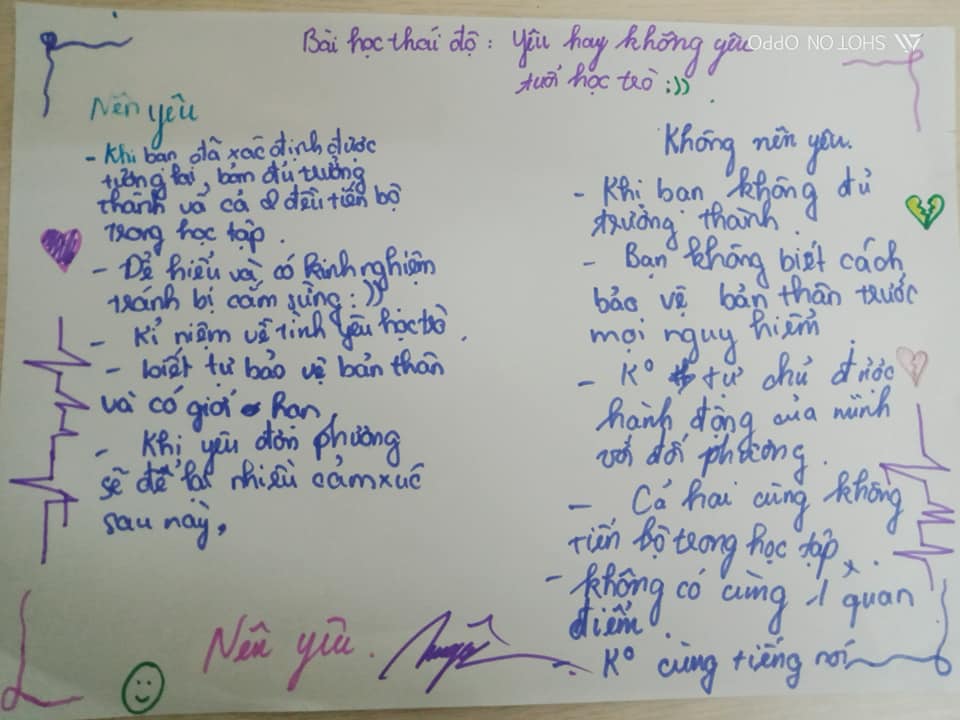 Bài học thái độ: Yêu hay không yêu
tuổi học trò :))
SHOT ON OPPO
Nên yêu
- Khi bạn đã xác định được
tương lai, bản đủ trưởng
thành và cả 2 đều tiến bộ
trong học tập.
- Dể hiểu và có kinh nghiệm
tránh bị cắm sừng :))
- Kỉ niệm về tình yêu học trò.
- biết tự bảo vệ bản thân
và có giới hạn
- Khi yêu đơn phương
sẽ để lại nhiều cảm xúc
sau này,
Không nên yêu.
- Khi bạn không đủ
trưởng thành.
- Bạn không biết cách
bảo vệ bản thân trước
mọi nguy hiểm
- K° tự chủ được
hành động của mình
với đối phương.
- Cả hai cùng không
tiến bộ trong học tập.
- không có cùng 1 quan
điểm.
K° cùng tiếng nói
Nên yêu.